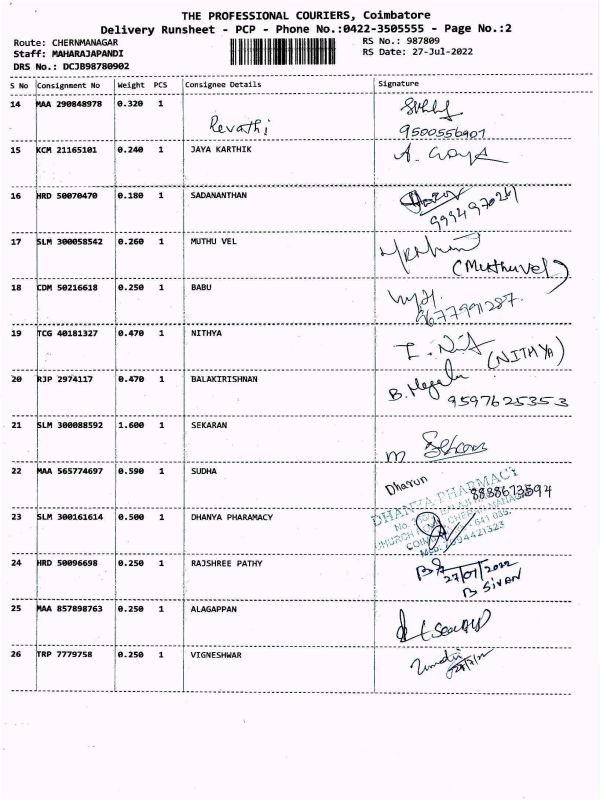 THE PROFESSIONAL COURIERS, Coimbatore
Delivery Runsheet - PCP - Phone No.:0422-3505555 - Page No.:2
Route: CHERNMANAGAR RS No.: 987809
Staff: MAHARAJAPANDI RS Date: 27-Jul-2022
DRS No.: DCJB98780902
S No Consignment No Weight PCS Consignee Details Signature
14 MAA 290848978 0.320 1
Revathi
9500556907
15 KCM 21165101 0.240 1 JAYA KARTHIK
16 HRD 50070470 0.180 1 SADANANTHAN
17 SLM 300058542 0.260 1 MUTHU VEL
(Muthuvel)
18 CDM 50216618 0.250 1 BABU
9677991287.
19 TCG 40181327 0.470 1 NITHYA
(NITHYA)
20 RJP 2974117 0.470 1 BALAKIRISHNAN
B. Megala
9597625353
21 SLM 300088592 1.600 1 SEKARAN
22 MAA 565774697 0.590 1 SUDHA
Dharun
23 SLM 300161614 0.500 1 DHANYA PHARAMACY
DHANYA PHARMACY
24 HRD 50096698 0.250 1 RAJSHREE PATHY
27/07/2022
B SIVAN
25 MAA 857898763 0.250 1 ALAGAPPAN
26 TRP 7779758 0.250 1 VIGNESHWAR